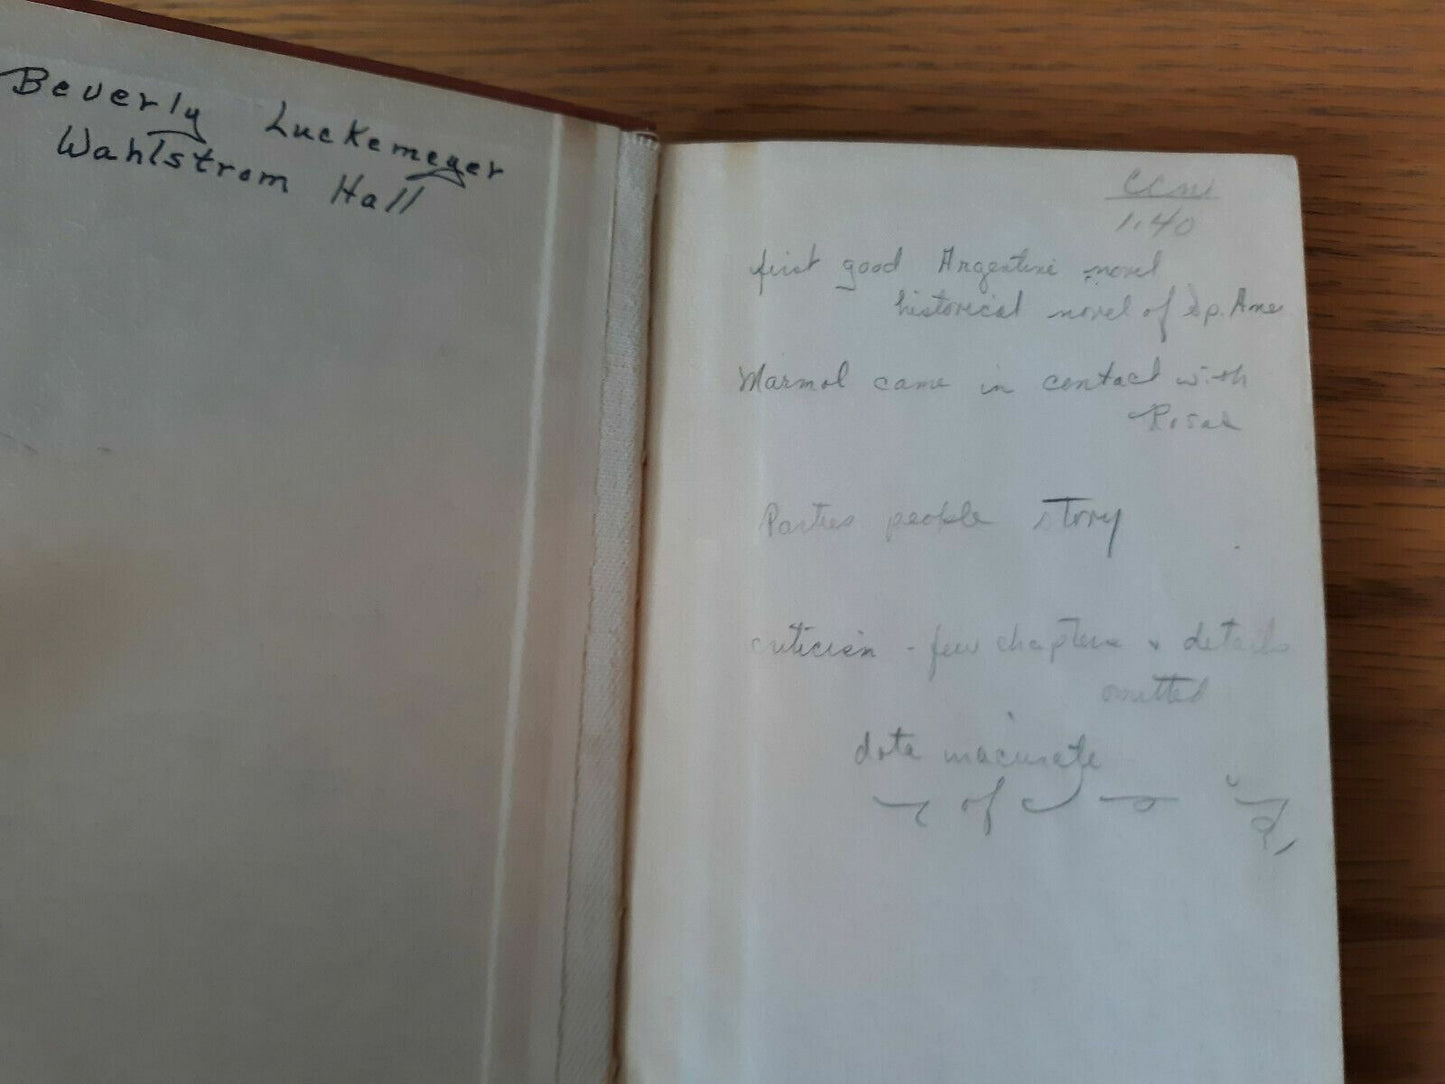 Beverly Luckemeyer
Wahlstrom Hall
1.40
first good Argentine novel
historical novel of Sp. Ame
Marmol came in contact with
Rosas
Parties people story
criticism - few chapters & details
omitted
data inaccurate
of